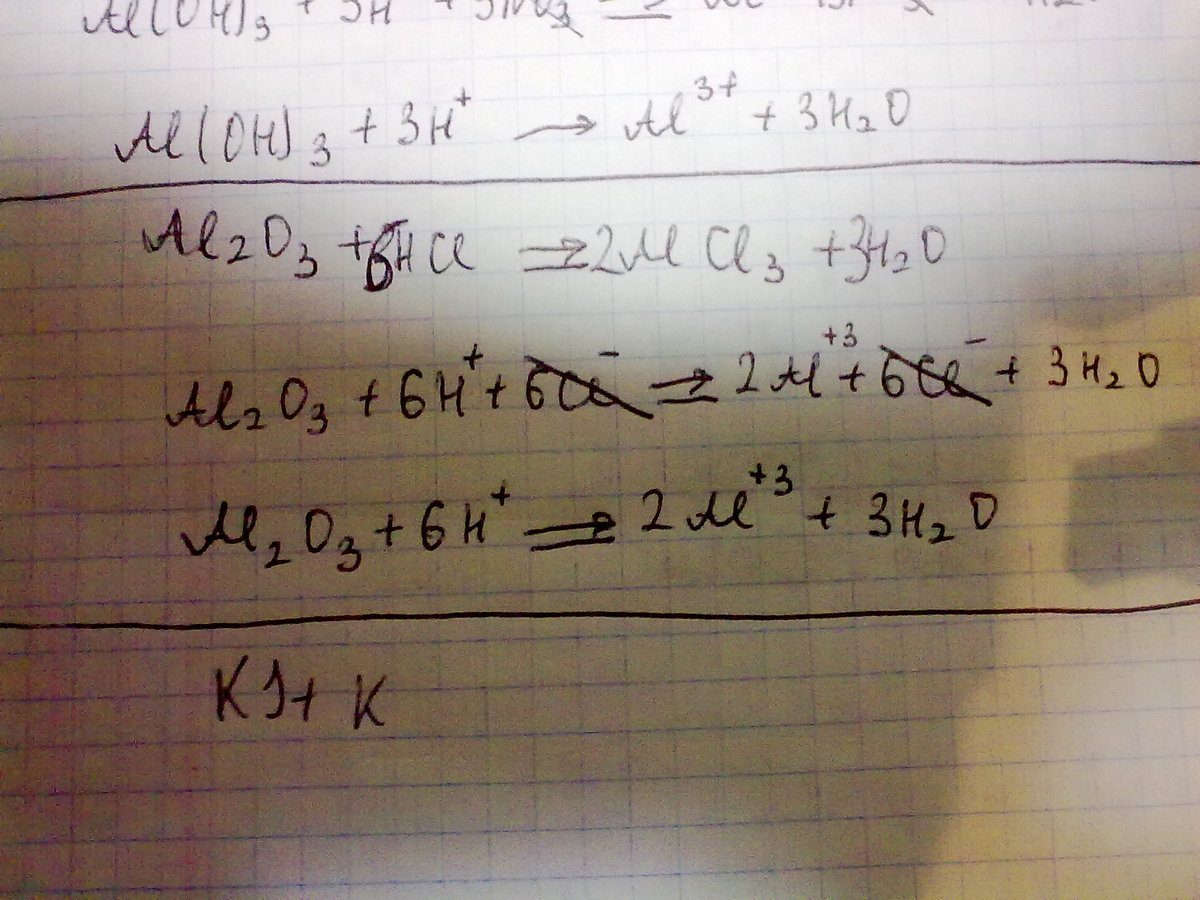 Al(OH)3 + 3H
Al(OH)3 + 3H+ → Al3+ + 3H2O
Al2O3 + 6HCl ⇒ 2AlCl3 + 3H2O
Al2O3 + 6H+ + 6Cl- ⇒ 2Al+3 + 6Cl- + 3H2O
Al2O3 + 6H+ ⇒ 2Al+3 + 3H2O
KJ + K